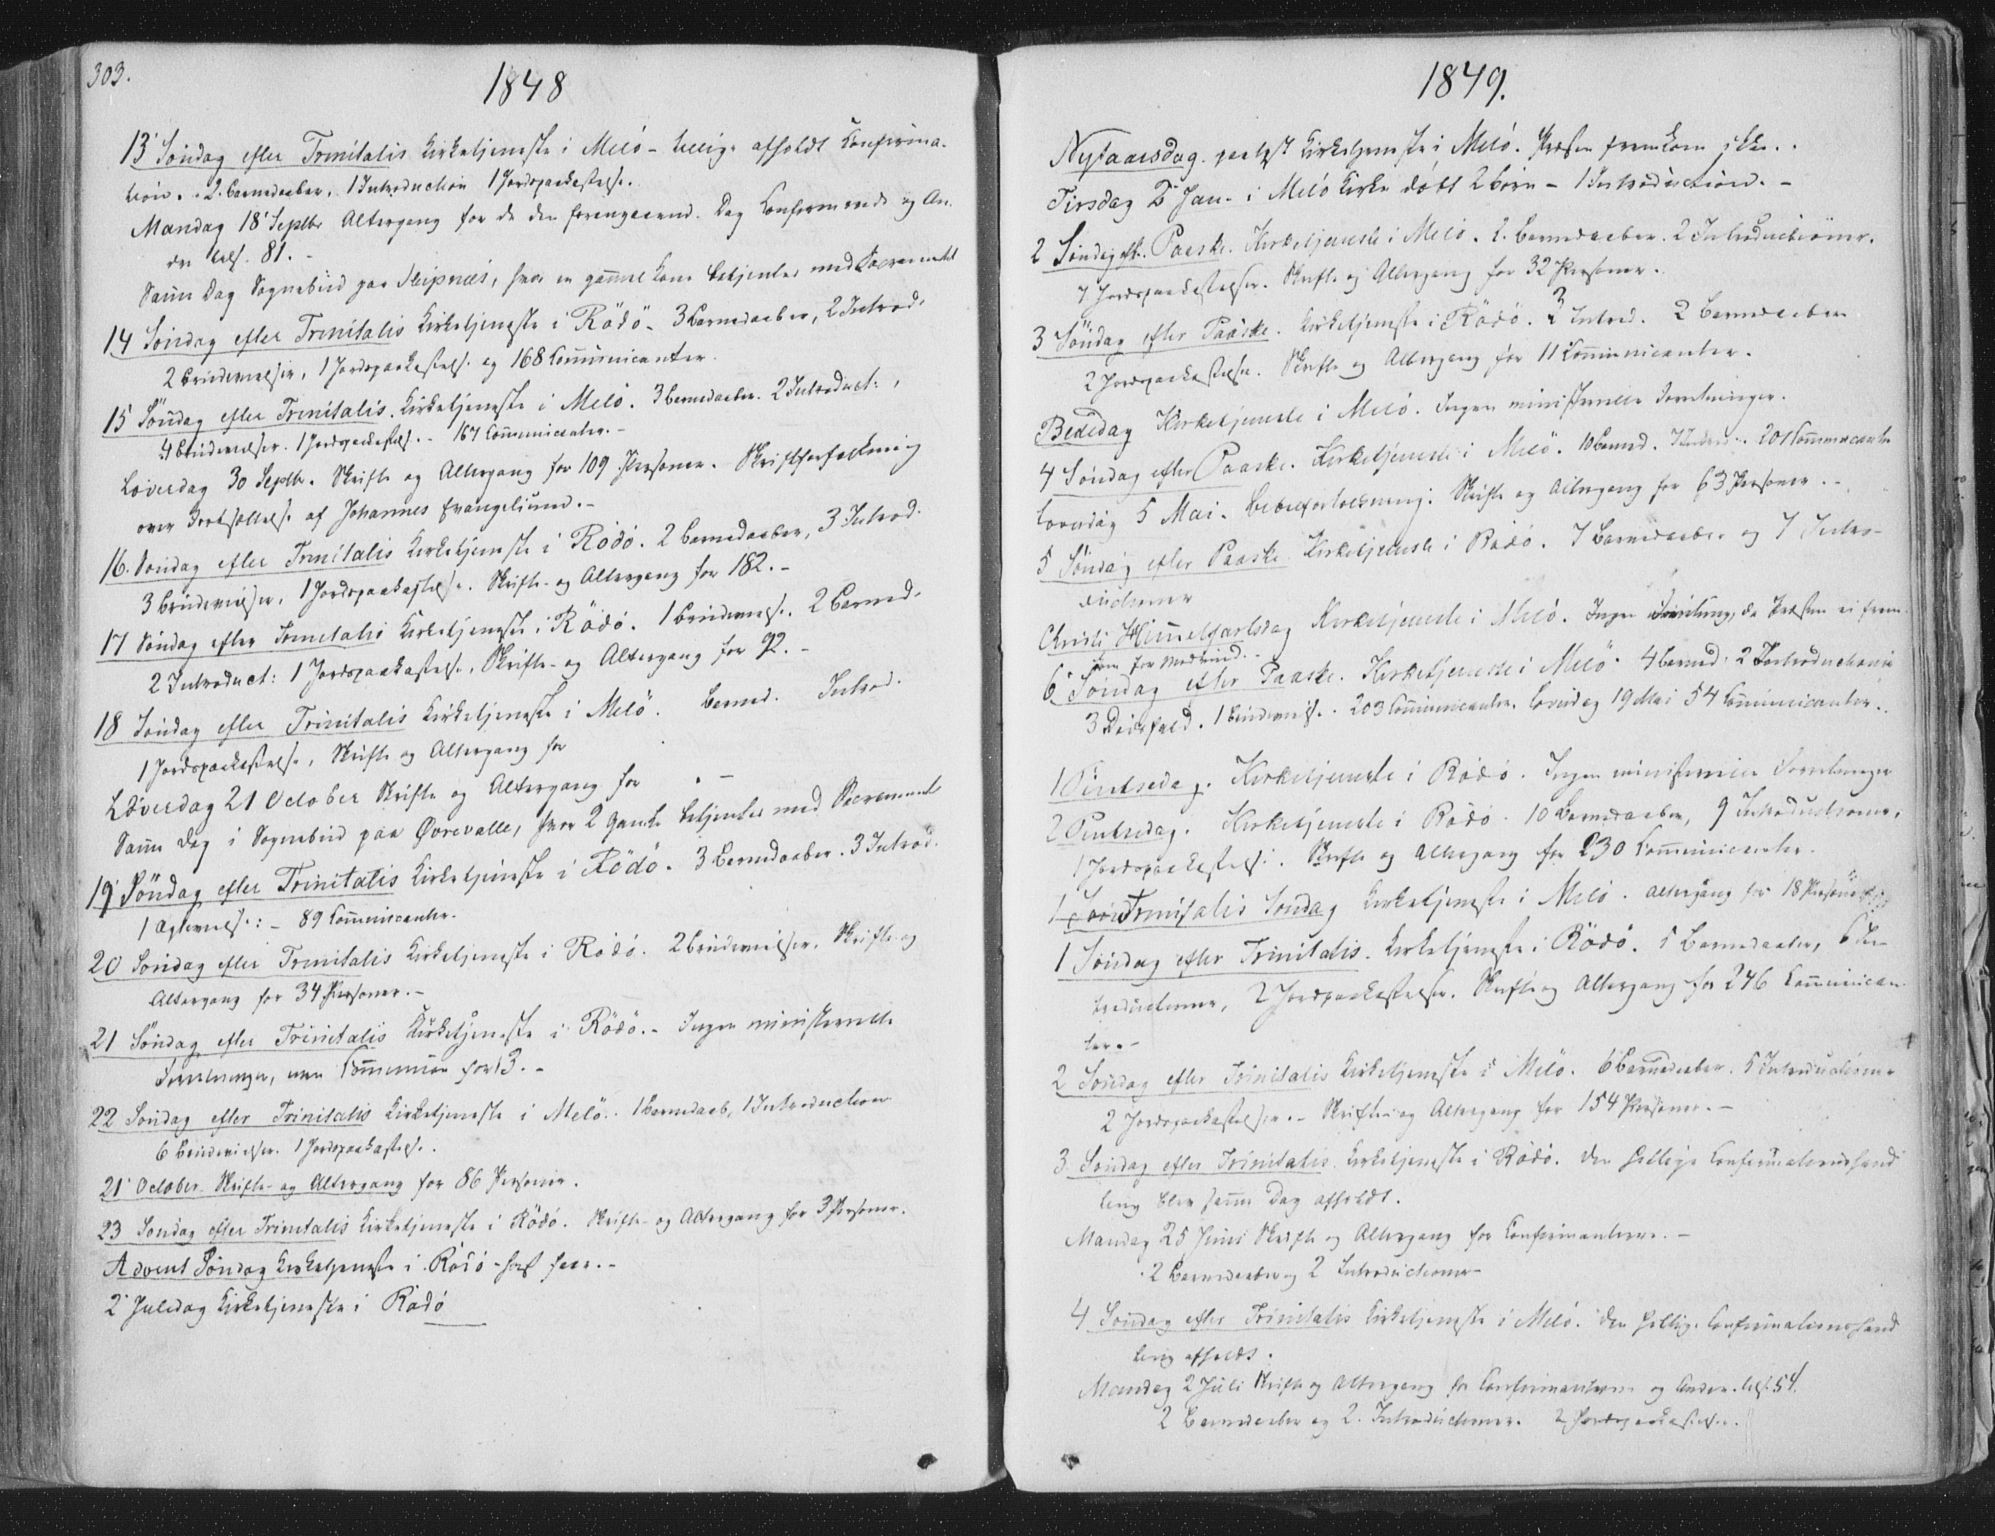 303.
1848
13' Söndag efter Trinitatis Kirketjeneste i Melö - hellige afholdt Confirma-
tion. - 2 Barnedaaber. 1 Introduction 1 Jordspaakastelse.
Mandag 18' Septbr Altergang for de den foregaaende Dag Confirmerede og An-
dre 81. -
Samme Dag Sognebud paa Skipnæs, hvor en gammel Kone betjentes med Sacramentet
14 Söndag efter Trinitatis Kirketjeneste i Rödö - 3 Barnedaaber, 2 Introd.
2 Brudevielser, 1 Jordspaakastelse og 168 Communicanter.
15 Söndag efter Trinitatis. Kirketjeneste i Melö. 3 Barnedaaber. 2 Introduct:,
4 Brudevielser. 1 Jordspaakastels. - 167 Communicanter. -
Löverdag 30 Septbr. Skrifte og Altergang for 109 Personer. Skriftforklaring
over Fortsættelse af Johannes Evangelium. -
16. Söndag efter Trinitatis Kirketjeneste i Rödö. 2 Barnedaaber, 3 Introd.
3 Brudevielser, 1 Jordspaakastelse. Skrifte- og Altergang for 182. -
17 Söndag efter Trinitatis Kirketjeneste i Rödö. 1 Brudevielse. 2 Barned.
2 Introduct: 1 Jordspaakastelse, Skrifte- og Altergang for 92. -
18 Söndag efter Trinitatis Kirketjeneste i Melö. Barned. Introd.
1 Jordspaakastelse, Skrifte og Altergang for
Löverdag 21 October Skrifte og Altergang for . -
Samme Dag i Sognebud paa Örevalle, hvor 2 Gamle betjentes med Sacramentet
19' Söndag efter Trinitatis Kirketjeneste i Rödö. 3 Barnedaaber. 3 Introd.
1 Ægtevielse: - 89 Communicanter.
20 Söndag efter Trinitatis Kirketjeneste i Rödö. 2 Brudevielser. Skrifte- og
Altergang for 34 Personer. -
21 Söndag efter Trinitatis Kirketjeneste i Rödö. - Ingen ministerielle
Forretninger, men Communion for 13. -
22 Söndag efter Trinitatis Kirketjeneste i Melö. 1 Barnedaab, 1 Introduction
6 Brudevielser. 1 Jordspaakastelse.
21' October Skrifte- og Altergang for 86 Personer.
23 Söndag efter Trinitatis Kirketjeneste i Rödö. Skrifte- og Altergang for 3 Personer.
Advent Söndag Kirketjeneste i Rödö -
2' Juledag Kirketjeneste i Rödö
1849.
Nytaarsdag Kirketjeneste i Melö. Præsten fremkom ikke.
Tirsdag 2' Jan. i Melö Kirke döbt 2 Börn - 1 Introduction. -
2 Söndag eft. Paaske. Kirketjeneste i Melö. 2. Barnedaaber. 2 Introductioner.
7 Jordspaakastelser. Skrifte og Altergang for 32 Personer.
3 Söndag efter Paaske. Kirketjeneste i Rödö. 3 Introd. 2 Barnedaaber
2 Jordspaakastelse. Skrifte og Altergang for 11 Communicanter.
Bededag Kirketjeneste i Melö. Ingen ministerielle Forretninger.
4 Söndag efter Paaske. Kirketjeneste i Melö. 10 Barned. 7 Introd. 201 Communicanter
Loverdag 5 Mai. Bibelforklaring. Skrifte og Altergang for 63 Personer. -
5 Söndag efter Paaske Kirketjeneste i Rödö. 7 Barnedaaber og 7 Intro-
ductioner
Christi Himmelfartsdag Kirketjeneste i Melö. Ingen Forretning, da Præsten ei frem-
kom for Modvind. -
6 Söndag efter Paaske. Kirketjeneste i Melö. 4 Barned. 2 Introductioner
3 Dödsfald. 1 Brudevielse. 203 Communicanter. Loverdag 19 Mai 54 Communicanter.
1 Pintsedag. Kirketjeneste i Rödö. Ingen ministerielle Forretninger
2 Pintsedag. Kirketjeneste i Rödö. 10 Barnedaaber, 9 Introductioner,
1 Jordspaakastelse. Skrifte og Altergang for 230 Communicanter.
Trinitatis Söndag Kirketjeneste i Melö. Altergang for 18 Personer
1 Söndag efter Trinitatis. Kirketjeneste i Rödö. 5 Barnedaaber, 6 In-
troductioner, 2 Jordspaakastelser. Skrifte og Altergang for 246 Communican-
ter. -
2 Söndag efter Trinitatis Kirketjeneste i Melö. 6 Barnedaaber. 5 Introductioner
2 Jordspaakastelser. - Skrifte- og Altergang for 154 Personer. -
3. Söndag efter Trinitatis. Kirketjeneste i Rödö. Den hellige Confirmationshand
ling blev samme Dag afholdt.
Mandag 25 Juni Skrifte og Altergang for Confirmanterne. -
2 Barnedaaber og 2 Introductioner -
4 Söndag efter Trinitatis Kirketjeneste i Melö. Den hellige Confirmationshand
ling afholdt.
Mandag 2 Juli Skrifte og Altergang for Confirmanterne og Andre. 54.
2 Barnedaaber og 2. Introductioner. 2 Jordspaakastelser.